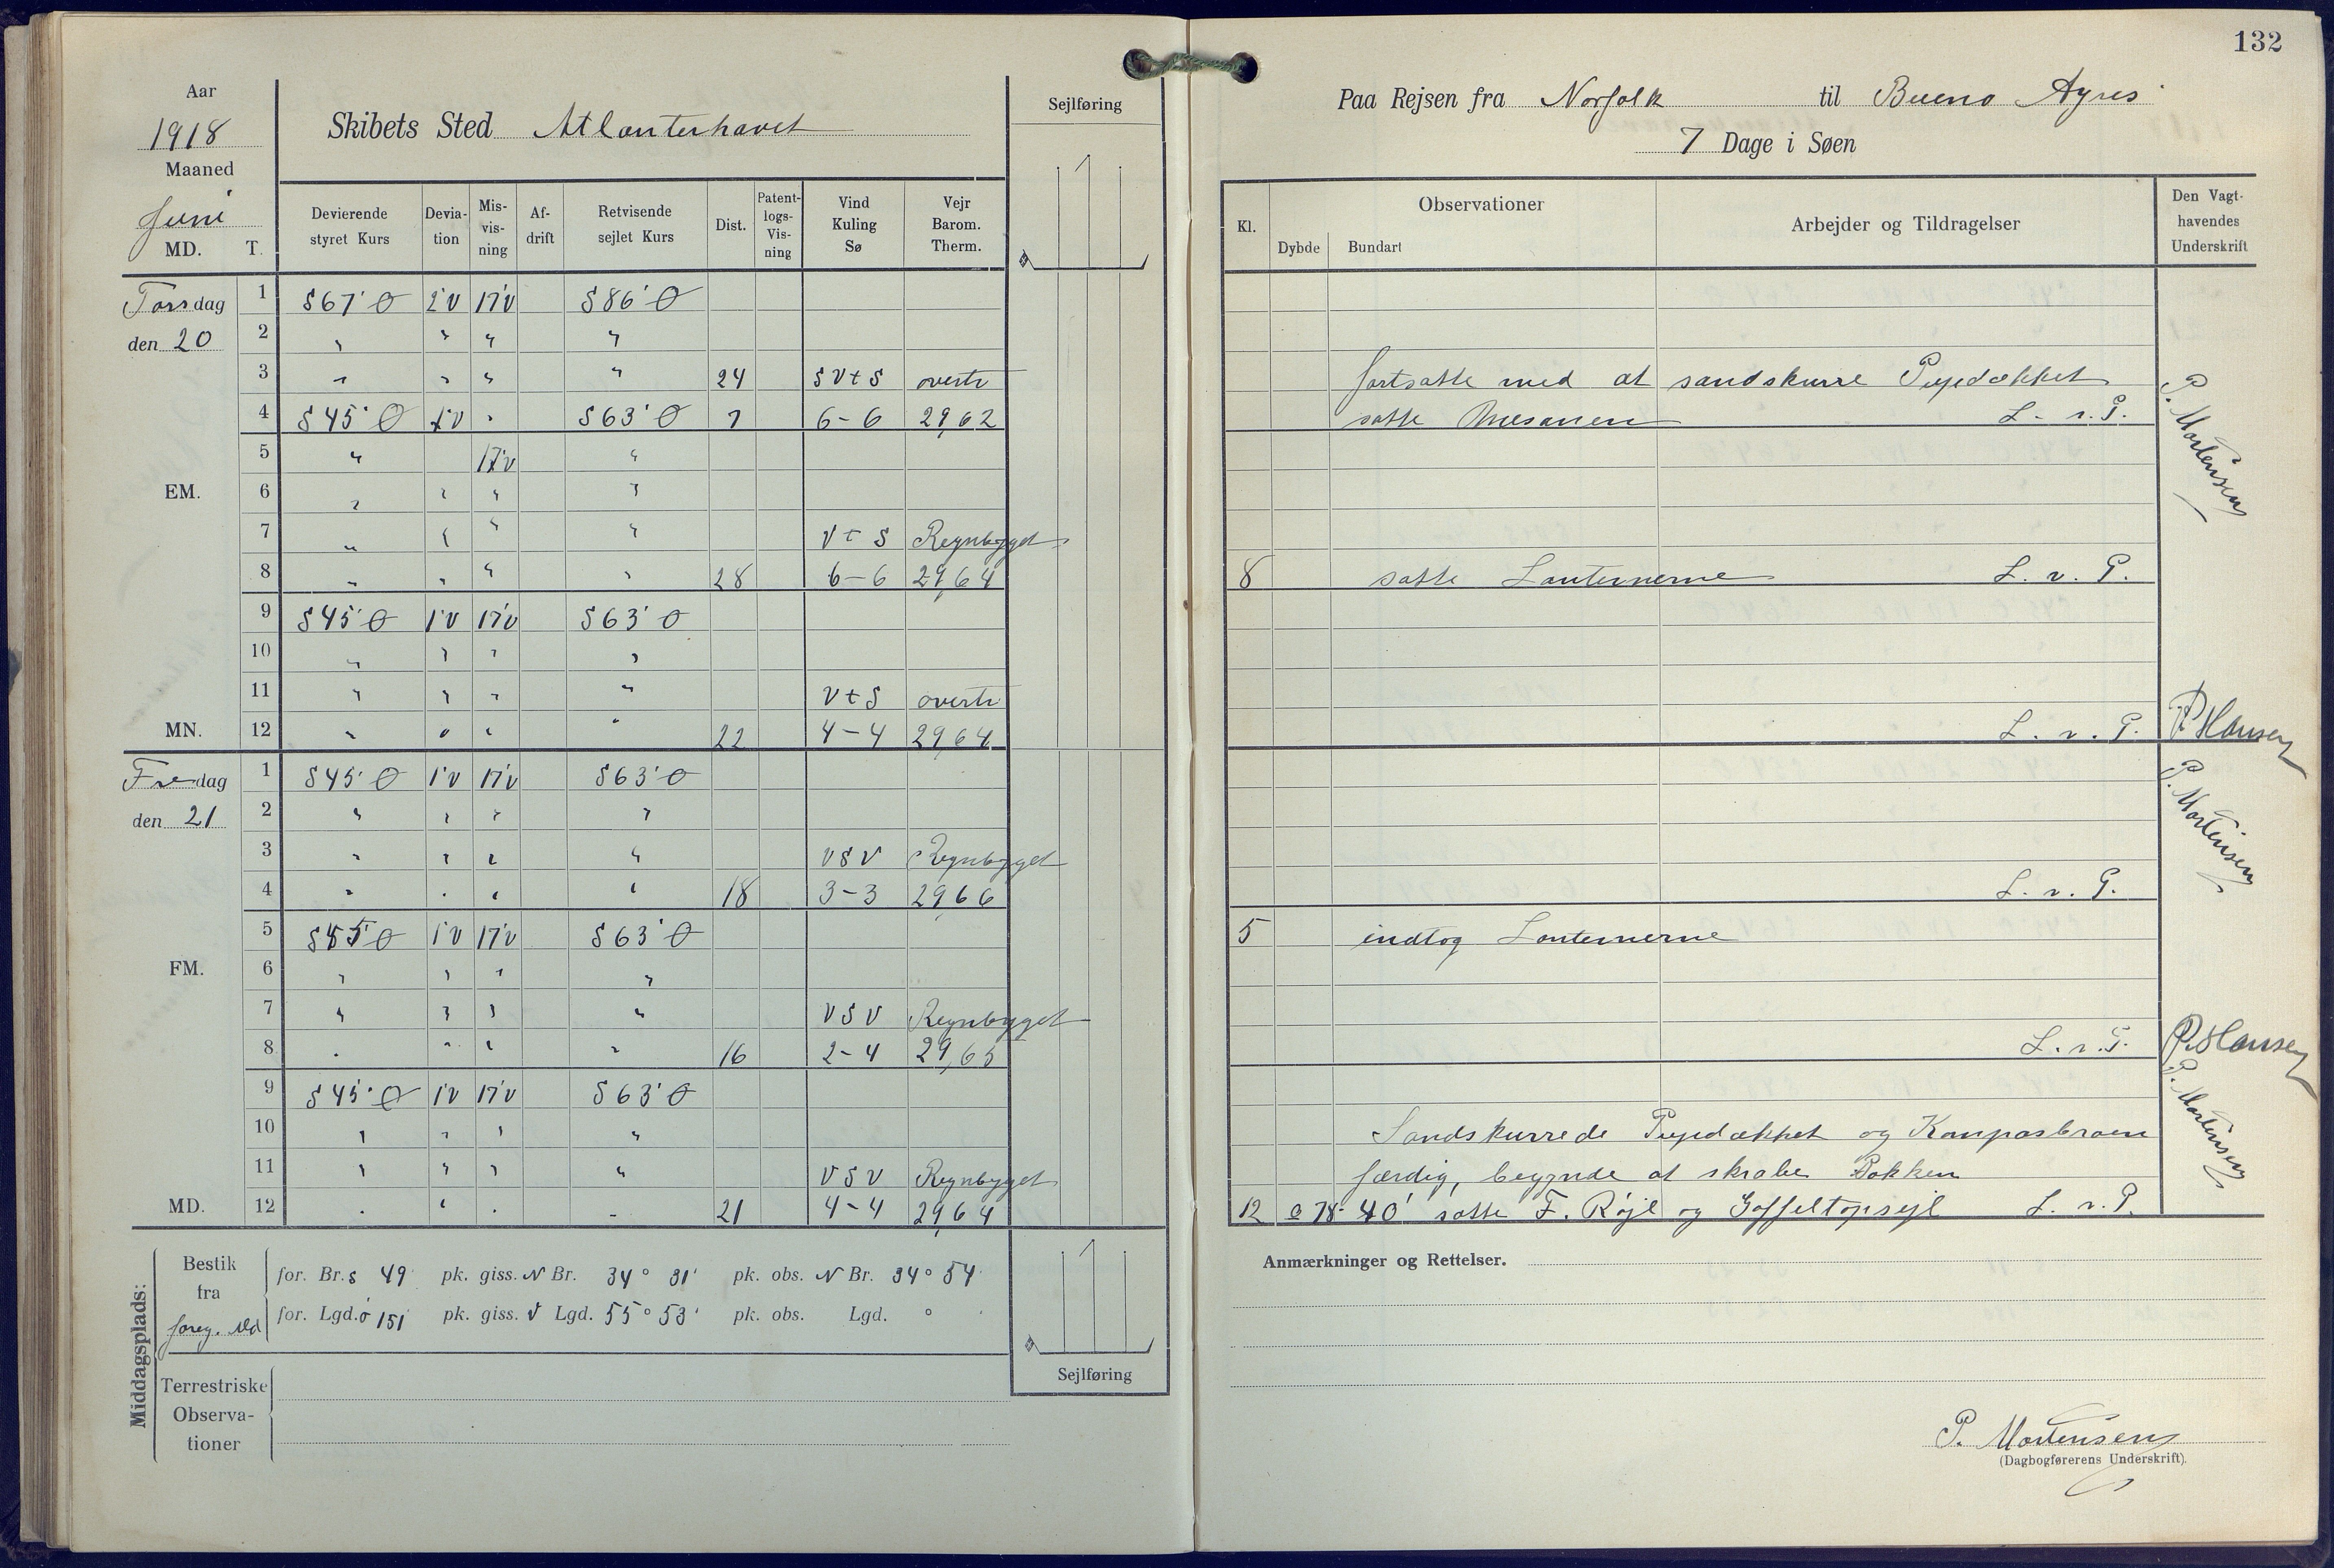 132
Aar
1918
Maaned
Juni
MD. T.
Skibets Sted Atlanterhavet
Sejlføring
Devierende styret Kurs | Devia-tion | Mis-vis-ning | Af-drift | Retvisende sejlet Kurs | Dist. | Patent-logs-Vis-ning | Vind Kuling Sø | Vejr Barom. Therm.
Torsdag 1 S 67° Ø 2°V 17°V S 86° Ø
den 20 2 " " " "
3 " " " " 24 SVtS overtr
4 S 45° Ø 1°V " S 63° Ø 7 6-6 29,62
5 " 17°V "
EM. 6 " " " "
7 " " " " VtS Regnbyget
8 " " " " 28 6-6 29,64
9 S 45° Ø 1°V 17°V S 63° Ø
10 " " " "
11 " " " " VtS overtr
MN. 12 " " " " 22 4-4 29,64
Fredag 1 S 45° Ø 1°V 17°V S 63° Ø
den 21 2 " " " "
3 " " " " VSV Regnbyget
4 " " " " 18 3-3 29,66
5 S 45° Ø 1°V 17°V S 63° Ø
FM. 6 " " " "
7 " " " " VSV Regnbyget
8 " " " " 16 2-4 29,65
9 S 45° Ø 1°V 17°V S 63° Ø
10 " " " "
11 " " " " VSV Regnbyget
MD. 12 " " " " 21 4-4 29,64
Middagsplads:
Bestik fra foreg. Md
for. Br. S 49' pk. giss. N Br. 34° 31' pk. obs. N Br. 34° 54'
for. Lgd. Ø 151' pk. giss. V Lgd. 55° 53' pk. obs. Lgd. °
Terrestriske
Observa-
tioner
Sejlføring
Paa Rejsen fra Norfolk til Bueno Ayres
7 Dage i Søen
Kl. | Observationer Dybde Bundart | Arbejder og Tildragelser | Den Vagt-havendes Underskrift
fortsatte med at sandskurre Pupedækket
satte Mesanen L. v. P.
P. Mortensen
8 satte Lanternerne L. v. P.
L. v. P. P. Hansen
L. v. P. P. Mortensen
5 indtog Lanternerne
L. v. P. P. Hansen
Sandskurrede Pupedækket og Kompasbroen
færdig, begynde at skrabe Bakken
12 78° 40' satte F. Røjl og Gaffeltopsejl L. v. P.
P. Mortensen
Anmærkninger og Rettelser.
P. Mortensen
(Dagbogførerens Underskrift).